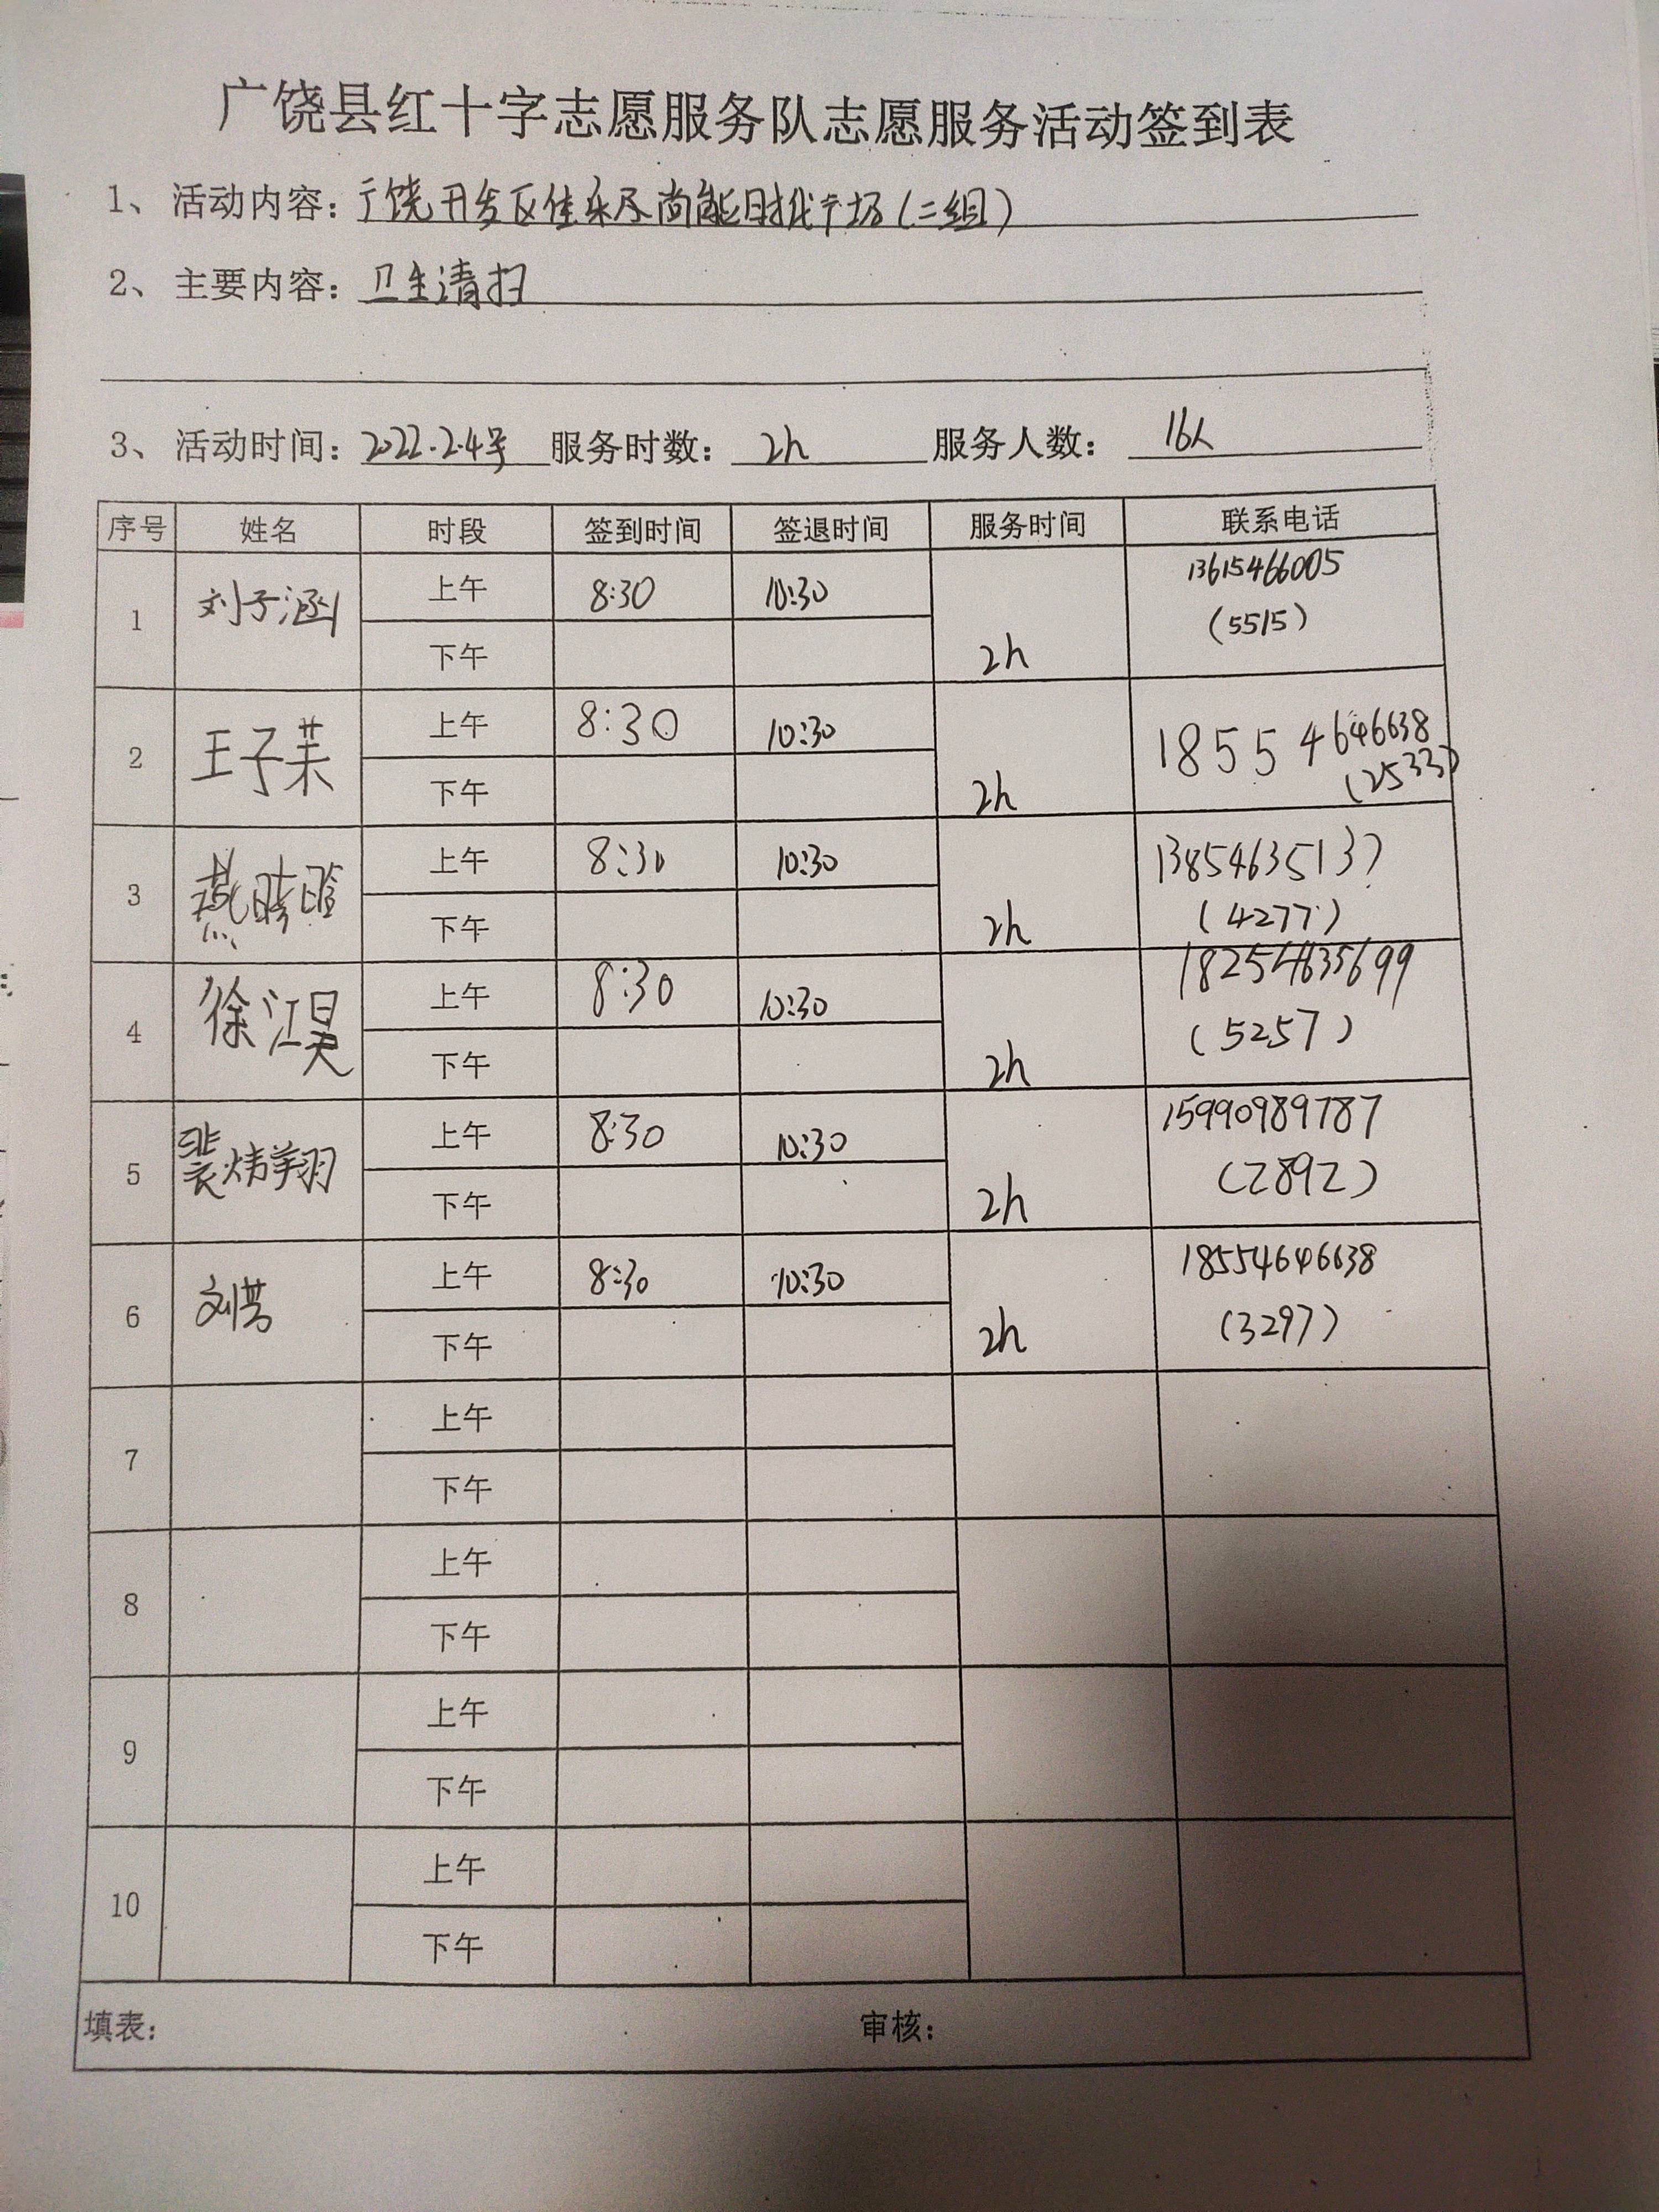 广饶县红十字志愿服务队志愿服务活动签到表
1、活动内容：广饶开发区佳乐及尚能时代广场(二组)
2、主要内容：卫生清扫
3、活动时间：2022.2.4号 服务时数：2h 服务人数：16人
序号 姓名 时段 签到时间 签退时间 服务时间 联系电话
1 刘子涵 上午 8:30 10:30 2h 13615466005
下午 (5515)
2 王子茉 上午 8:30 10:30 2h 18554646638
下午 (2533)
3 燕晴晗 上午 8:30 10:30 2h 13854635137
下午 (4277)
4 徐江昊 上午 8:30 10:30 2h 18254635699
下午 (5257)
5 裴炜翔 上午 8:30 10:30 2h 15990989787
下午 (2892)
6 刘芸 上午 8:30 10:30 2h 18554646638
下午 (3297)
7 上午
下午
8 上午
下午
9 上午
下午
10 上午
下午
填表： 审核：